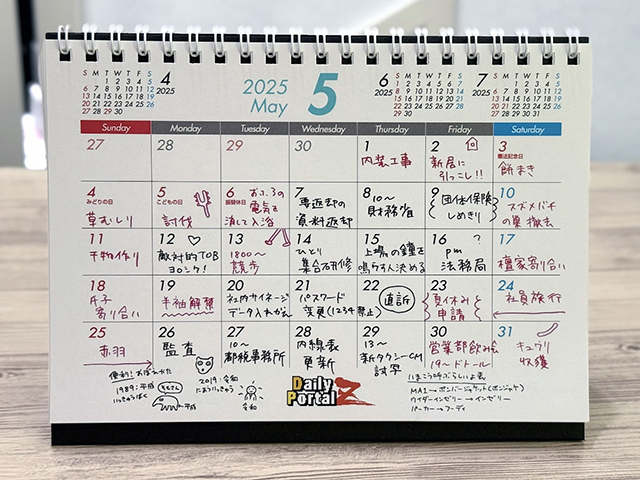 4 2025
S M T W T F S
1 2 3 4 5
6 7 8 9 10 11 12
13 14 15 16 17 18 19
20 21 22 23 24 25 26
27 28 29 30
2025 May 5
6 2025
S M T W T F S
1 2 3 4 5 6 7
8 9 10 11 12 13 14
15 16 17 18 19 20 21
22 23 24 25 26 27 28
29 30
7 2025
S M T W T F S
1 2 3 4 5
6 7 8 9 10 11 12
13 14 15 16 17 18 19
20 21 22 23 24 25 26
27 28 29 30 31
Sunday Monday Tuesday Wednesday Thursday Friday Saturday
27 28 29 30 1 2 3
憲法記念日
内装工事
新居に
引っこし!!
餅まき
4 5 6 7 8 9 10
みどりの日 こどもの日 振替休日
草むしり
討伐
おふろの
電気を
消して入浴
専返却の
資料返却
10〜
財務省
団体保険
しめきり
スズメバチ
の巣 撤去
11 12 13 14 15 16 17
干物作り
敵対的TOB
ヨロシク!
1800〜
競歩
ひとり
集合研修
上場の鐘を
鳴らす人決める
pm ?
法務局
檀家寄り合い
18 19 20 21 22 23 24
氏子
寄り合い
半袖解禁
社内サイネージ
データ入れかえ
パスワード
変更(1234禁止)
直訴
夏休みを
申請
社員旅行
25 26 27 28 29 30 31
赤羽
監査
10〜
都税事務所
内線表
更新
13〜
新タクシーCM
試写
営業部飲み会
19〜ドトール
キュウリ
収穫
便利!おぼえかた
1989:平成
いっきゅうばく
←平成
2019:令和
におういっきゅう
令和
Daily
Portal Z
いまこう呼ぶらしいよ表
MA1→ボンバージャケット(ボンジャケ)
ウイダーインゼリー→インゼリー
パーカー→フーディ